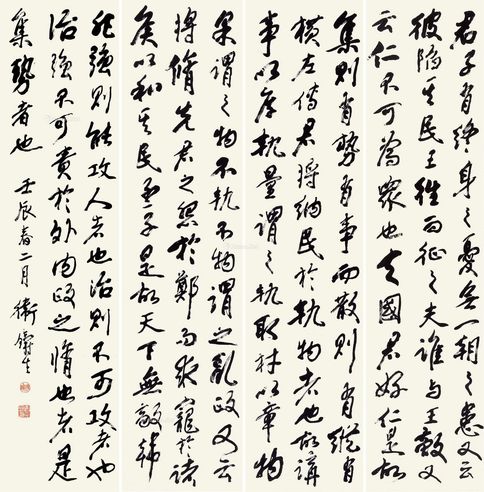 君子有終身之憂無一朝之患又云
彼陷其民王往而征之夫誰与王敵又
云仁不可為衆也夫國君好仁是故
集則有勢有事而散則有縱有
横左傳君將納民於軌物者也故講
事以度軌量謂之軌取材以章物
采謂之物不軌不物謂之亂政又云
將脩先君之怨於鄭而求寵於諸
矦以和其民孟子是故天下無敵韓
非強則能攻人者也治則不可攻者也
治強不可責於外内政之脩也者是
集勢者也 壬辰春二月 衛